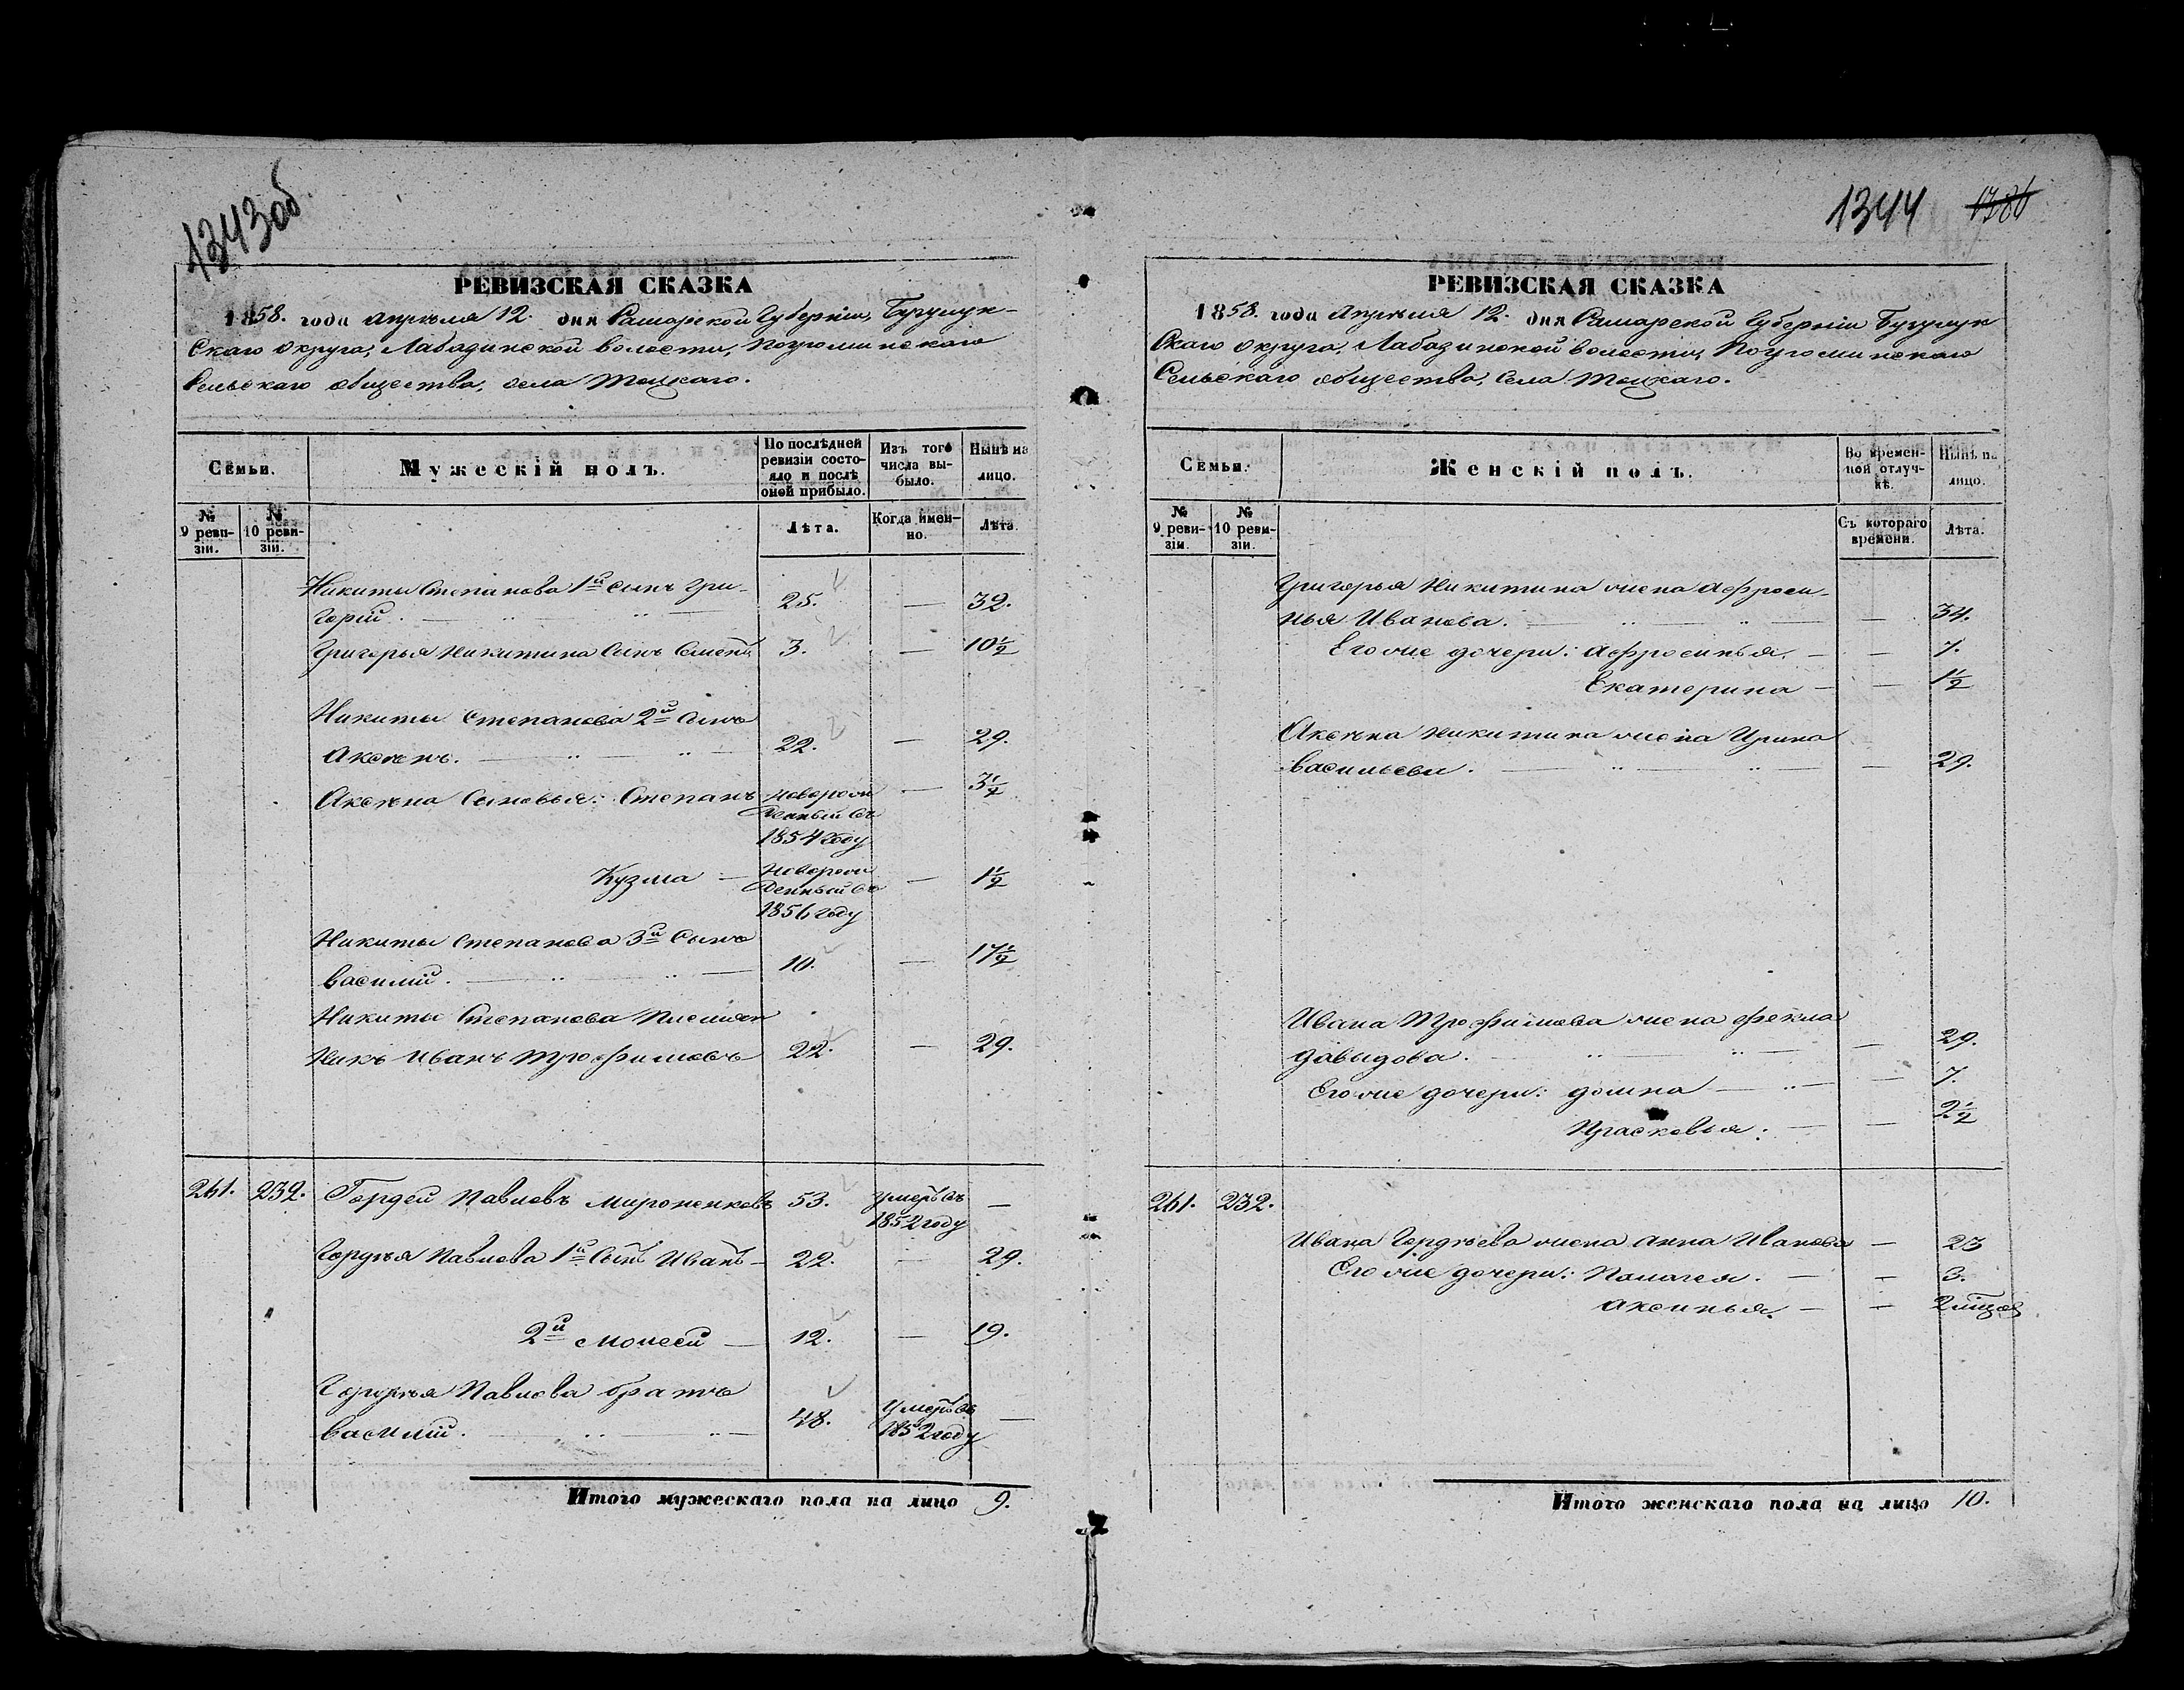 1343об
РЕВИЗСКАЯ СКАЗКА
1858. года апрѣля 12. дня Самарской Губерніи, Бузулук-
скаго округа, Лабазинской волости, Погроминскаго
Сельскаго общества, села Тоцкаго.
Семьи.
Мужескій полъ.
По послѣдней ревизіи состояло и послѣ оной прибыло.
Изъ того числа выбыло.
Нынѣ на лицо.
№ 9 ревизіи.
№ 10 ревизіи.
Лѣта.
Когда именно.
Лѣта.
Никиты Степанова 1й сынъ Гри-
горій. 25. — 32.
Григорья Никитина сынъ Семенъ 3. — 10½
Никиты Степанова 2й сынъ
Аксенъ. 22. — 29.
Аксена сыновья: Степанъ новорож — 3½
денный въ
1854 году
Кузма — новорож — 1½
денный въ
1856 году
Никиты Степанова 3й сынъ
василій. 10. — 17½
Никиты Степанова Племен
никъ Иванъ Трофимовъ 22. — 29.
261. 232. Гордей Павловъ Мироненковъ 53. умеръ въ —
1852 году
Гордѣя Павлова 1й сынъ Иванъ — 22. — 29.
2й Моисей — 12. — 19.
Гордѣя Павлова братъ
василій. 48. умеръ въ —
1852 году
Итого мужескаго пола на лицо 9.
1344 1386
РЕВИЗСКАЯ СКАЗКА
1858. года Апрѣля 12. дня Самарской Губерніи Бузулук
скаго округа, Лабазинской волости, Погроминскаго
Сельскаго общества, села Тоцкаго.
Семьи.
Женскій полъ.
Во временной отлучкѣ.
Нынѣ на лицо.
№ 9 ревизіи.
№ 10 ревизіи.
Съ котораго времени.
Лѣта.
Григорья Никитина жена Афроси-
нья Иванова. — 34.
Его же дочери: Афросинья. — — 7.
Екатерина — — 1½
Аксена Никитина жена Ирина
васильева. — 29.
Ивана Трофимова жена Фекла
давыдова. — 29.
Его же дочери: домна — — 7.
Прасковья. — — 2½
261. 232.
Ивана Гордѣева жена анна Иванова — 23
Его же дочери: Палагея. — — 3.
аксинья. — — 2 мѣсяц
Итого женскаго пола на лицо 10.